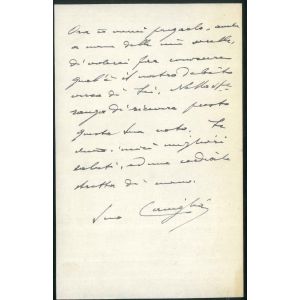 Ora io vorrei pregarlo, anche
a nome delle mie sorelle,
di volerci far conoscere
qual'è il nostro debito
verso di Lei. Nella spe
ranza di ricevere presto
questa sua nota. Le
invio i miei migliori
saluti, ed una cordiale
stretta di mano.
Suo